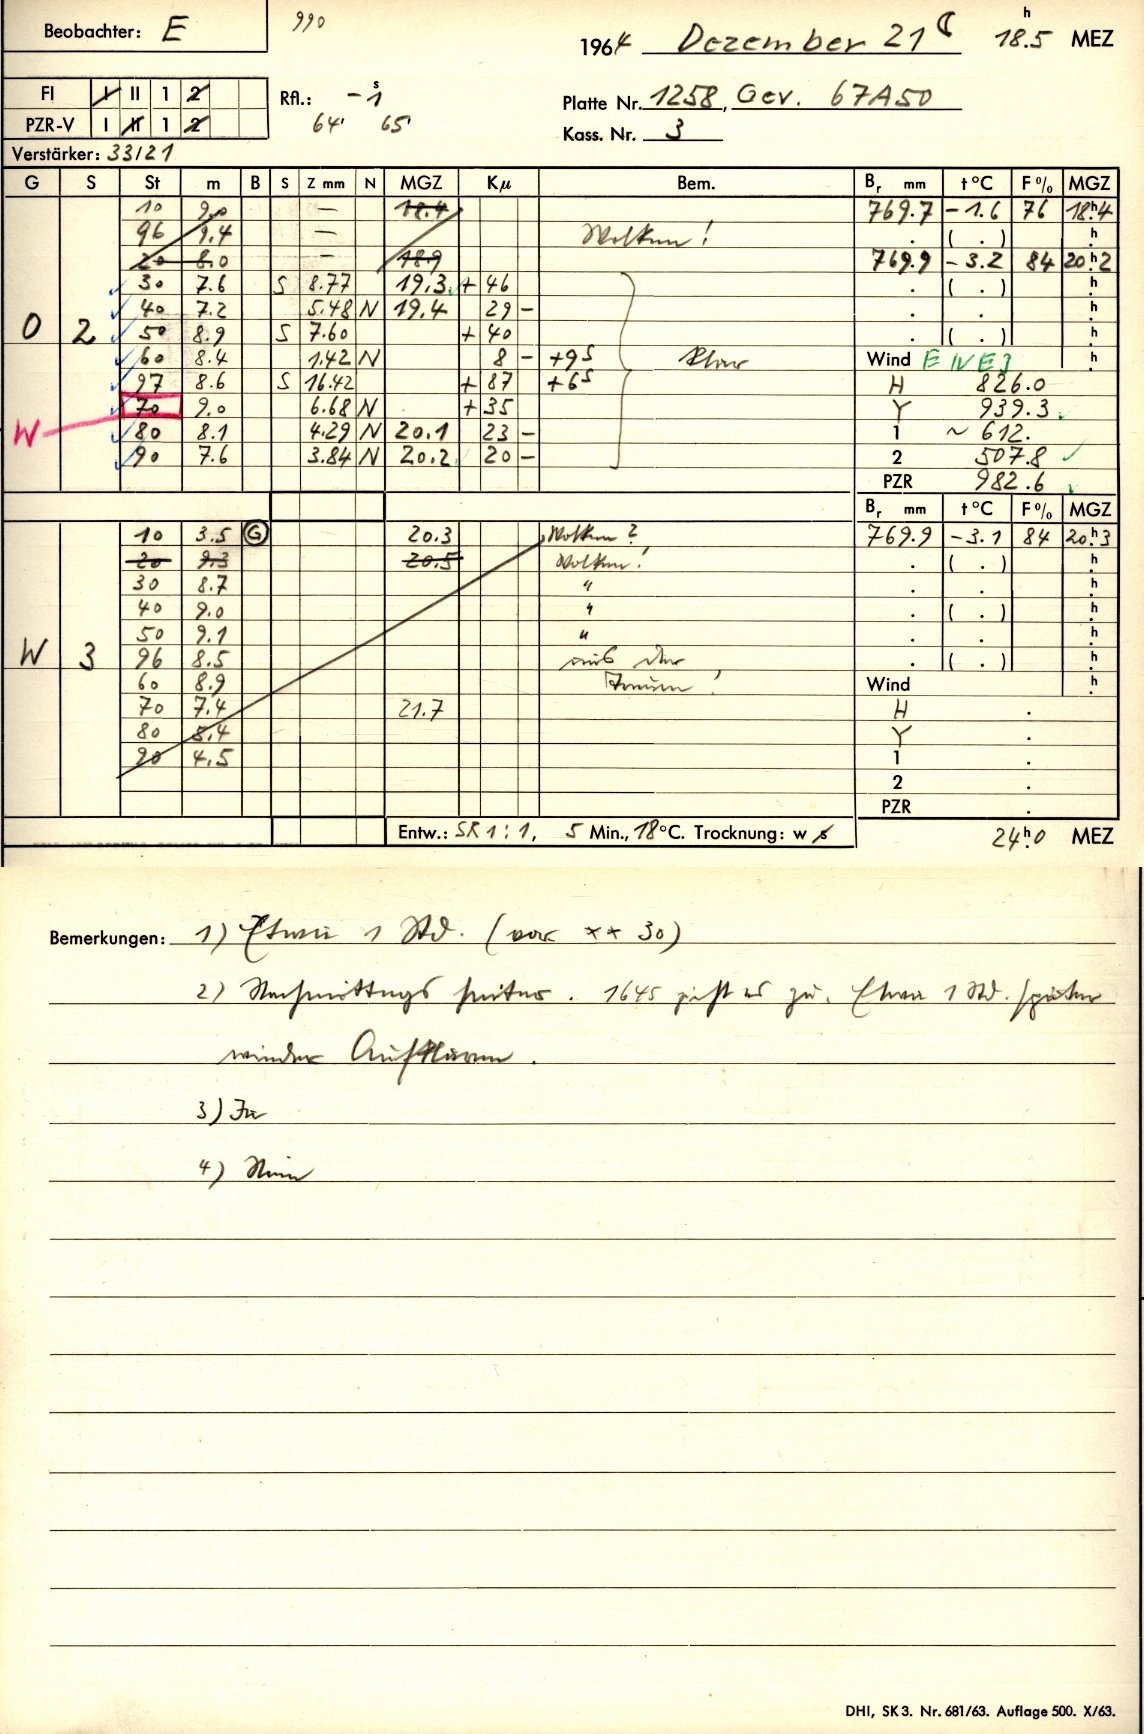 Beobachter: E 990 1964 Dezember 21 18.5 h MEZ
FI I II 1 2 Rfl.: -1 s Platte Nr. 1258, Gev. 67A50
PZR-V I II 1 2 64' 65' Kass. Nr. 3
Verstärker: 33/21
G S St m B S Z mm N MGZ Kμ Bem. Br mm t °C F % MGZ
10 9.0 — 18.4 769.7 -1.6 76 18h4
96 9.4 — Wolken! . ( . ) h
20 8.0 — 18.9 769.9 -3.2 84 20h2
30 7.6 S 8.77 19.3 + 46 . ( . ) h
40 7.2 5.48 N 19.4 29 - . . h
O 2 50 8.9 S 7.60 + 40 . ( . ) h
60 8.4 1.42 N 8 - +9s Klar Wind E [NE] h
97 8.6 S 16.42 + 87 +6s H 826.0
W 70 9.0 6.68 N + 35 Y 939.3
80 8.1 4.29 N 20.1 23 - 1 ~ 612.
90 7.6 3.84 N 20.2 20 - 2 507.8
PZR 982.6
Br mm t °C F % MGZ
10 3.5 G 20.3 Wolken? 769.9 -3.1 84 20h3
20 9.3 20.5 Wolken! . ( . ) h
30 8.7 " . . h
40 9.0 " . ( . ) h
50 9.1 " . . h
W 3 96 8.5 aus der . ( . ) h
60 8.9 Wind h
70 7.4 21.7 H .
80 5.4 Y .
90 4.5 1 .
2 .
PZR .
Entw.: SR 1:1, 5 Min., 18°C. Trocknung: w s 24h0 MEZ
Bemerkungen: 1) Etwa 1 Std. (vor ** 30)
2) Nachmittags heiter. 1645 zieht es zu. Etwa 1 Std. später
wieder Aufklaren.
3) Ja
4) Nein
DHI, SK 3. Nr. 681/63. Auflage 500. X/63.